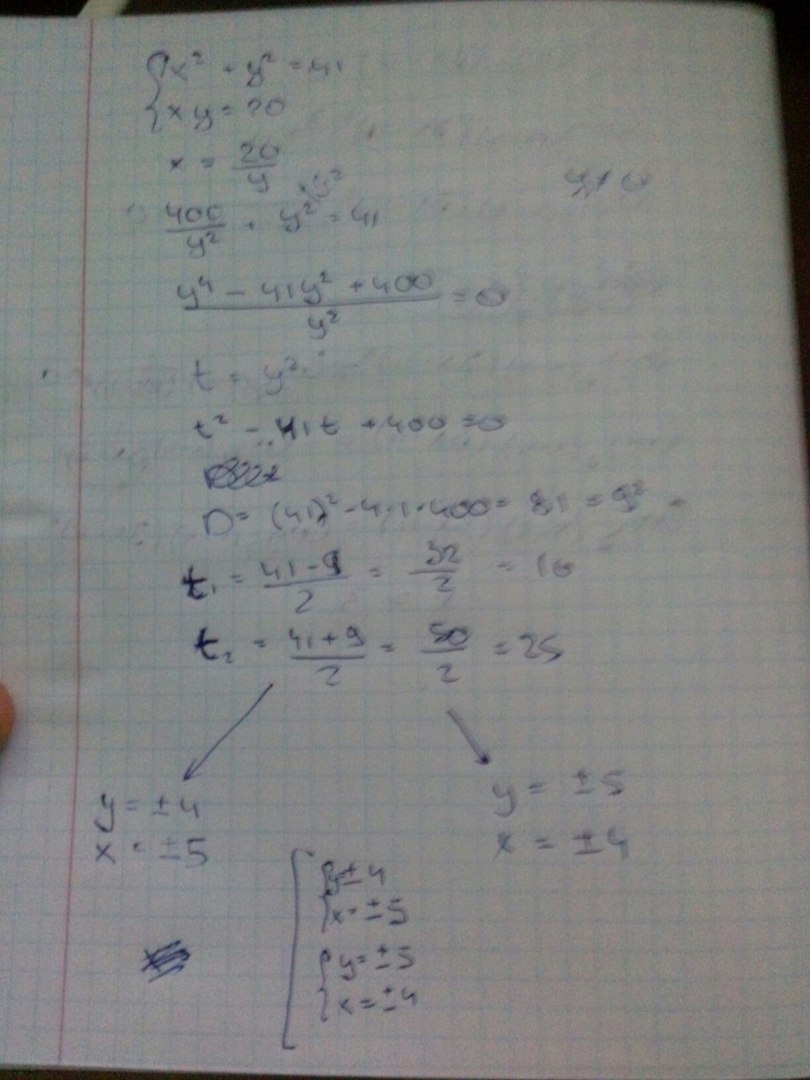 { x² + y² = 41
{ xy = 20
x = 20/y
y ≠ 0
400/y² + y² = 41
(y⁴ - 41y² + 400)/y² = 0
t = y²
t² - 41t + 400 = 0
D = (41)² - 4·1·400 = 81 = 9²
t₁ = (41-9)/2 = 32/2 = 16
t₂ = (41+9)/2 = 50/2 = 25
y = ±4
x = ±5
y = ±5
x = ±4
[ { y ± 4
{ x = ±5
{ y = ±5
{ x = ±4